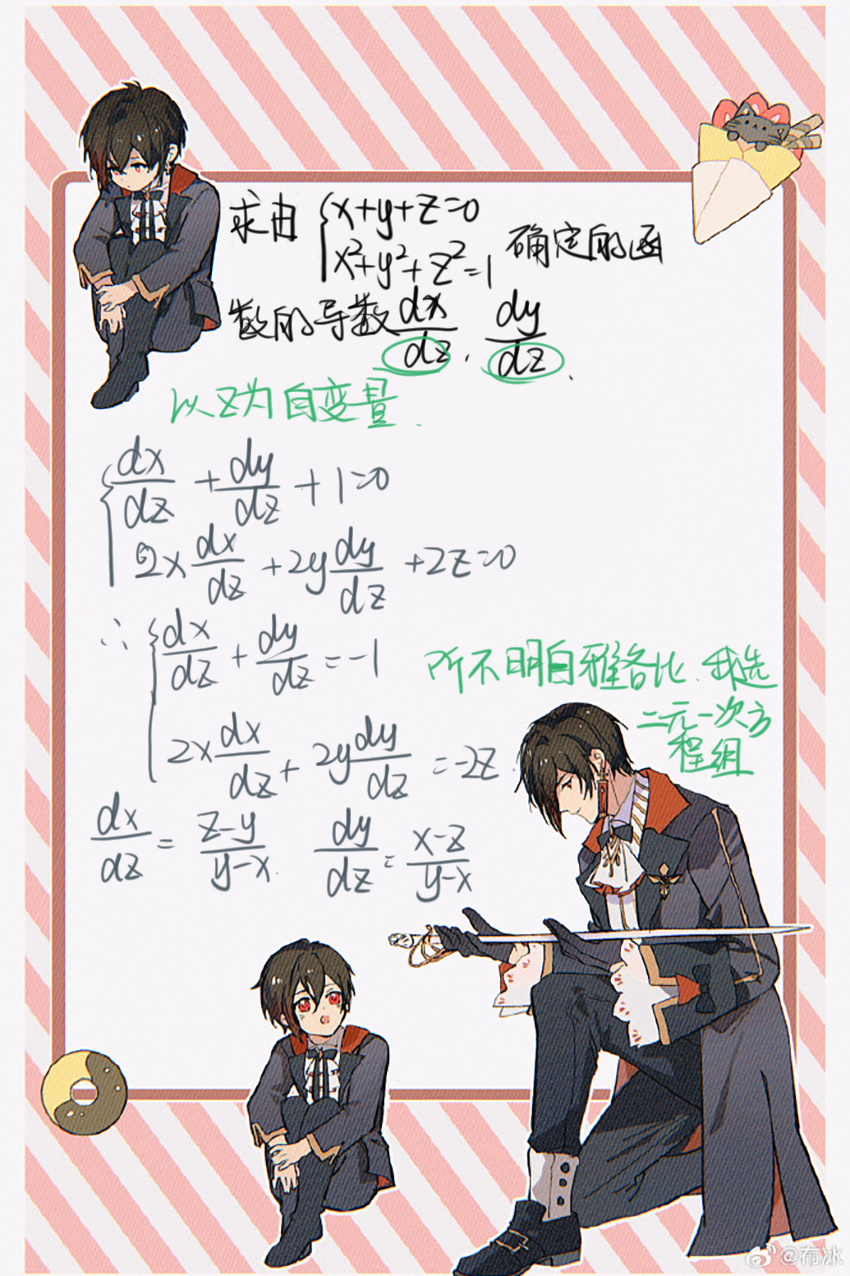 求由 { x+y+z=0
x²+y²+z²=1 确定的函
数的导数 dx/dz, dy/dz.
以z为自变量.
{ dx/dz + dy/dz + 1=0
2x dx/dz + 2y dy/dz + 2z=0
∴ { dx/dz + dy/dz = -1
2x dx/dz + 2y dy/dz = -2z.
所不明白雅各比.我选
二元一次方
程组
dx/dz = z-y/y-x dy/dz = x-z/y-x
@布冰